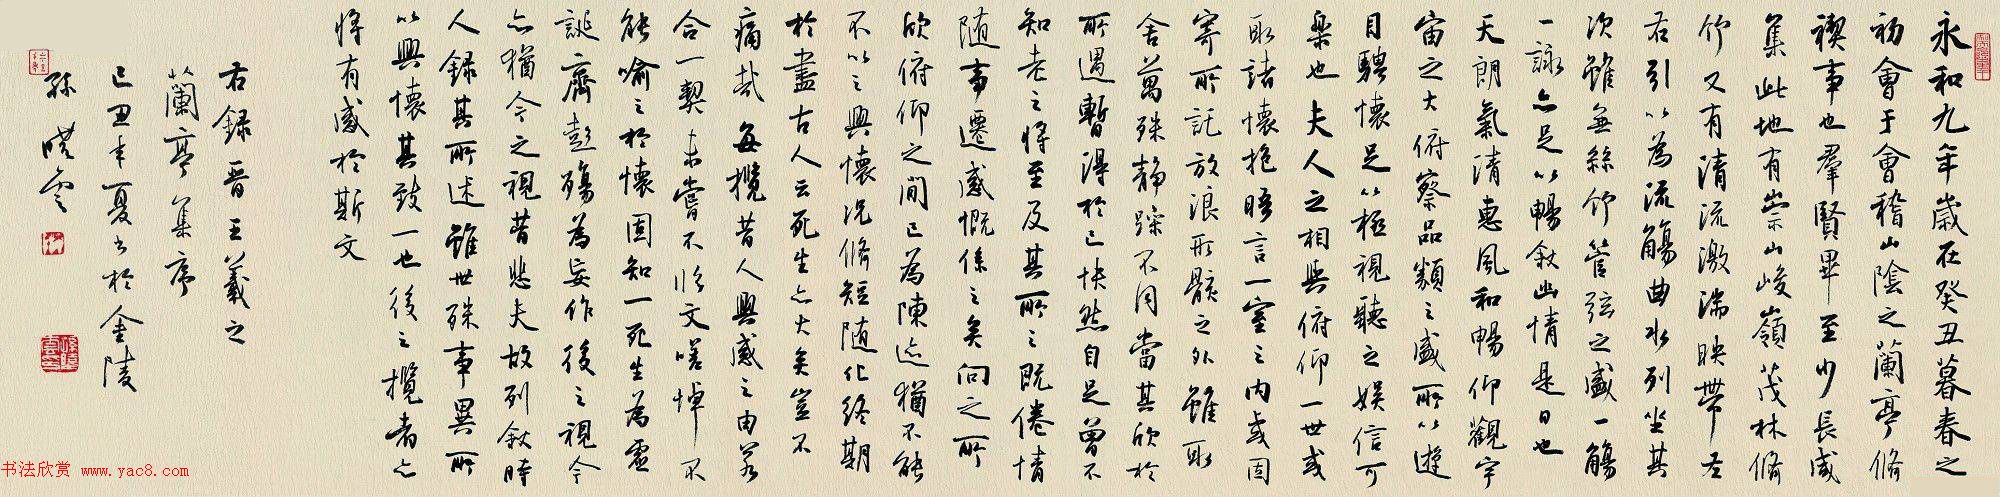 永和九年歲在癸丑暮春之
初會于會稽山陰之蘭亭脩
禊事也羣賢畢至少長咸
集此地有崇山峻嶺茂林脩
竹又有清流激湍映帶左
右引以為流觴曲水列坐其
次雖無絲竹管弦之盛一觴
一詠亦足以暢敘幽情是日也
天朗氣清惠風和暢仰觀宇
宙之大俯察品類之盛所以遊
目騁懷足以極視聽之娛信可
樂也夫人之相與俯仰一世或
取諸懷抱晤言一室之內或因
寄所託放浪形骸之外雖取
舍萬殊靜躁不同當其欣於
所遇暫得於己快然自足曾不
知老之將至及其所之既倦情
随事遷感慨係之矣向之所
欣俯仰之間已為陳迹猶不能
不以之興懷況脩短随化終期
於盡古人云死生亦大矣豈不
痛哉每攬昔人興感之由若
合一契未嘗不臨文嗟悼不
能喻之於懷固知一死生為虛
誕齊彭殤為妄作後之視今
亦猶今之視昔悲夫故列敘時
人錄其所述雖世殊事異所
以興懷其致一也後之攬者亦
將有感於斯文
右錄晉王羲之
蘭亭集序
己丑年夏書於金陵
孫曉雲
书法欣赏 www.yac8.com